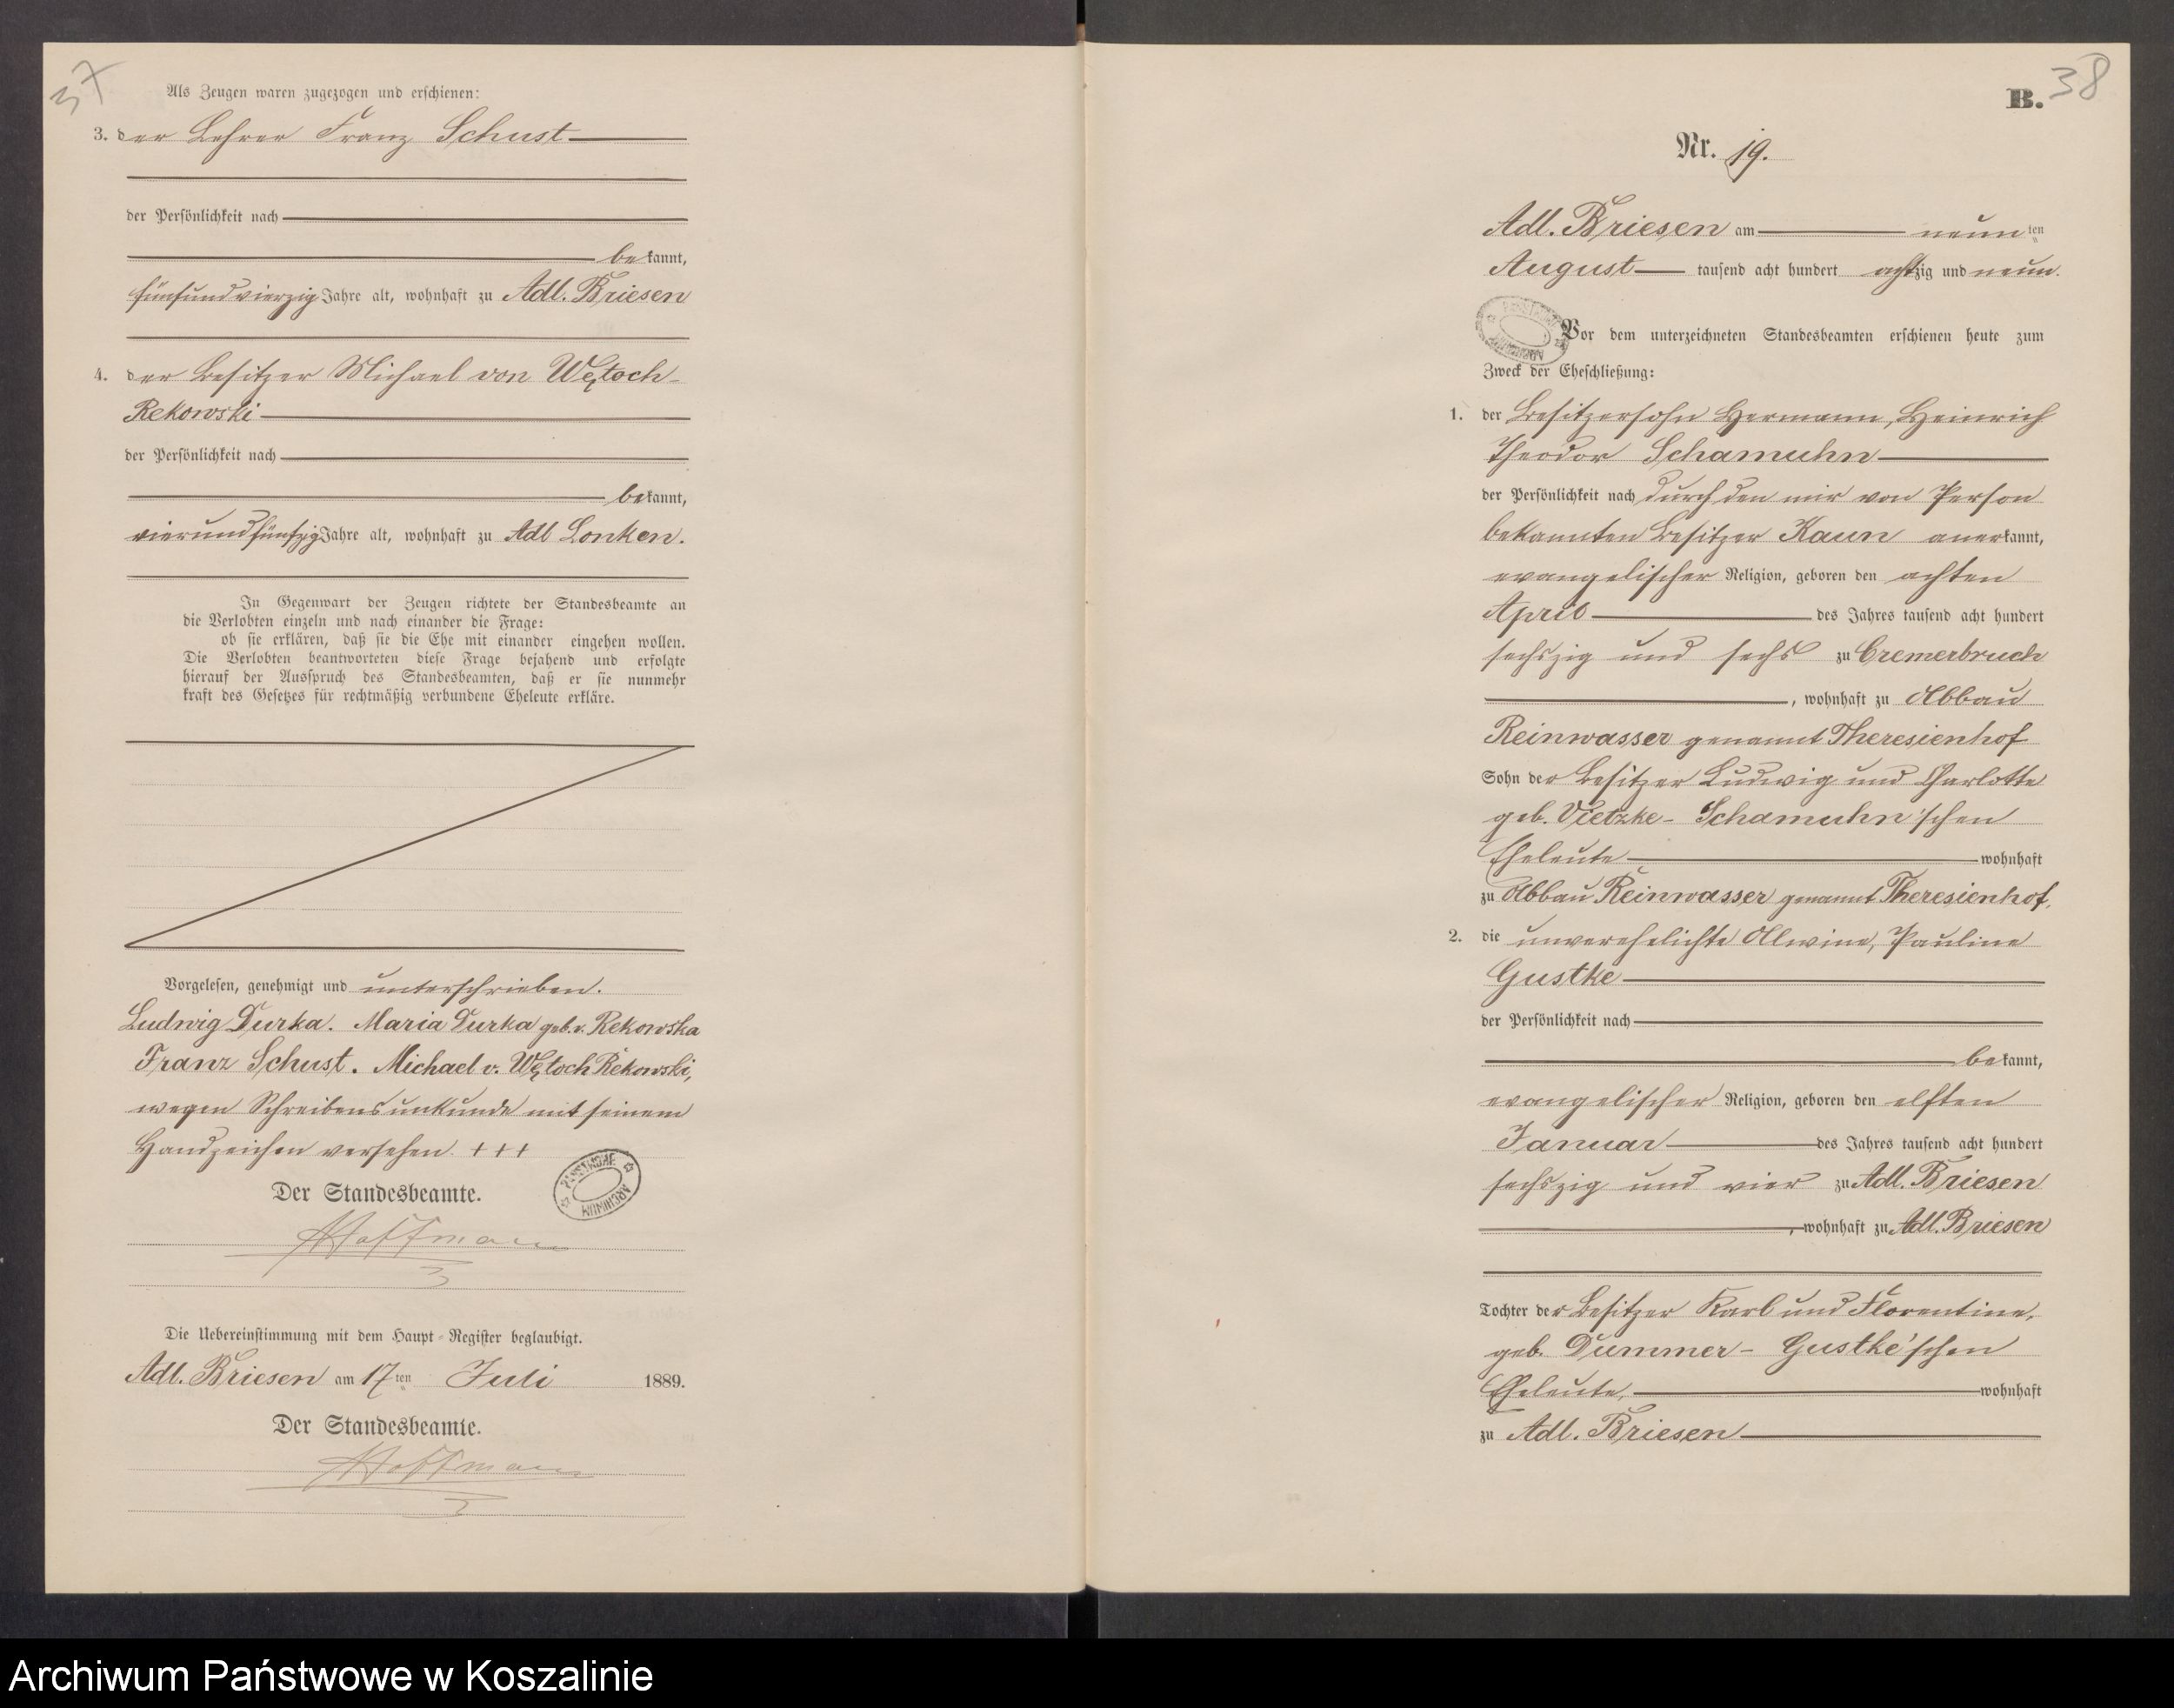 37
Als Zeugen waren zugezogen und erschienen:
3. der Lehrer Franz Schust
der Persönlichkeit nach
bekannt,
fünfundvierzig Jahre alt, wohnhaft zu Adl. Briesen
4. der Besitzer Michael von Wętoch-
Rekowski
der Persönlichkeit nach
bekannt,
vierundfünfzig Jahre alt, wohnhaft zu Adl Lonken.
In Gegenwart der Zeugen richtete der Standesbeamte an
die Verlobten einzeln und nach einander die Frage:
ob sie erklären, daß sie die Ehe mit einander eingehen wollen.
Die Verlobten beantworteten diese Frage bejahend und erfolgte
hierauf der Ausspruch des Standesbeamten, daß er sie nunmehr
kraft des Gesetzes für rechtmäßig verbundene Eheleute erkläre.
Vorgelesen, genehmigt und unterschrieben.
Ludwig Durka. Maria Durka geb. v. Rekowska
Franz Schust. Michael v. Wętoch Rekowski,
wegen Schreibensunkunde mit seinem
Handzeichen versehen. +++
Der Standesbeamte.
Hoffmann
Die Uebereinstimmung mit dem Haupt-Register beglaubigt.
Adl. Briesen am 17ten Juli 1889.
Der Standesbeamte.
Hoffmann
38
B.
Nr. 19.
Adl. Briesen am neunten
August tausend acht hundert achtzig und neun.
Vor dem unterzeichneten Standesbeamten erschienen heute zum
Zweck der Eheschließung:
1. der Besitzersohn Hermann, Heinrich
Theodor Schamuhn
der Persönlichkeit nach durch den mir von Person
bekannten Besitzer Kaun anerkannt,
evangelischer Religion, geboren den achten
April des Jahres tausend acht hundert
sechszig und sechs zu Cremerbruch
, wohnhaft zu Abbau
Reinwasser genannt Theresienhof
Sohn der Besitzer Ludwig und Charlotte
geb. Vietzke- Schamuhn'schen
Eheleute wohnhaft
zu Abbau Reinwasser genannt Theresienhof.
2. die unverehelichte Alwine, Pauline
Gustke
der Persönlichkeit nach
bekannt,
evangelischer Religion, geboren den elften
Januar des Jahres tausend acht hundert
sechszig und vier zu Adl. Briesen
, wohnhaft zu Adl. Briesen
Tochter der Besitzer Karl und Florentine,
geb. Dummer- Gustke'schen
Eheleute, wohnhaft
zu Adl. Briesen
Archiwum Państwowe w Koszalinie